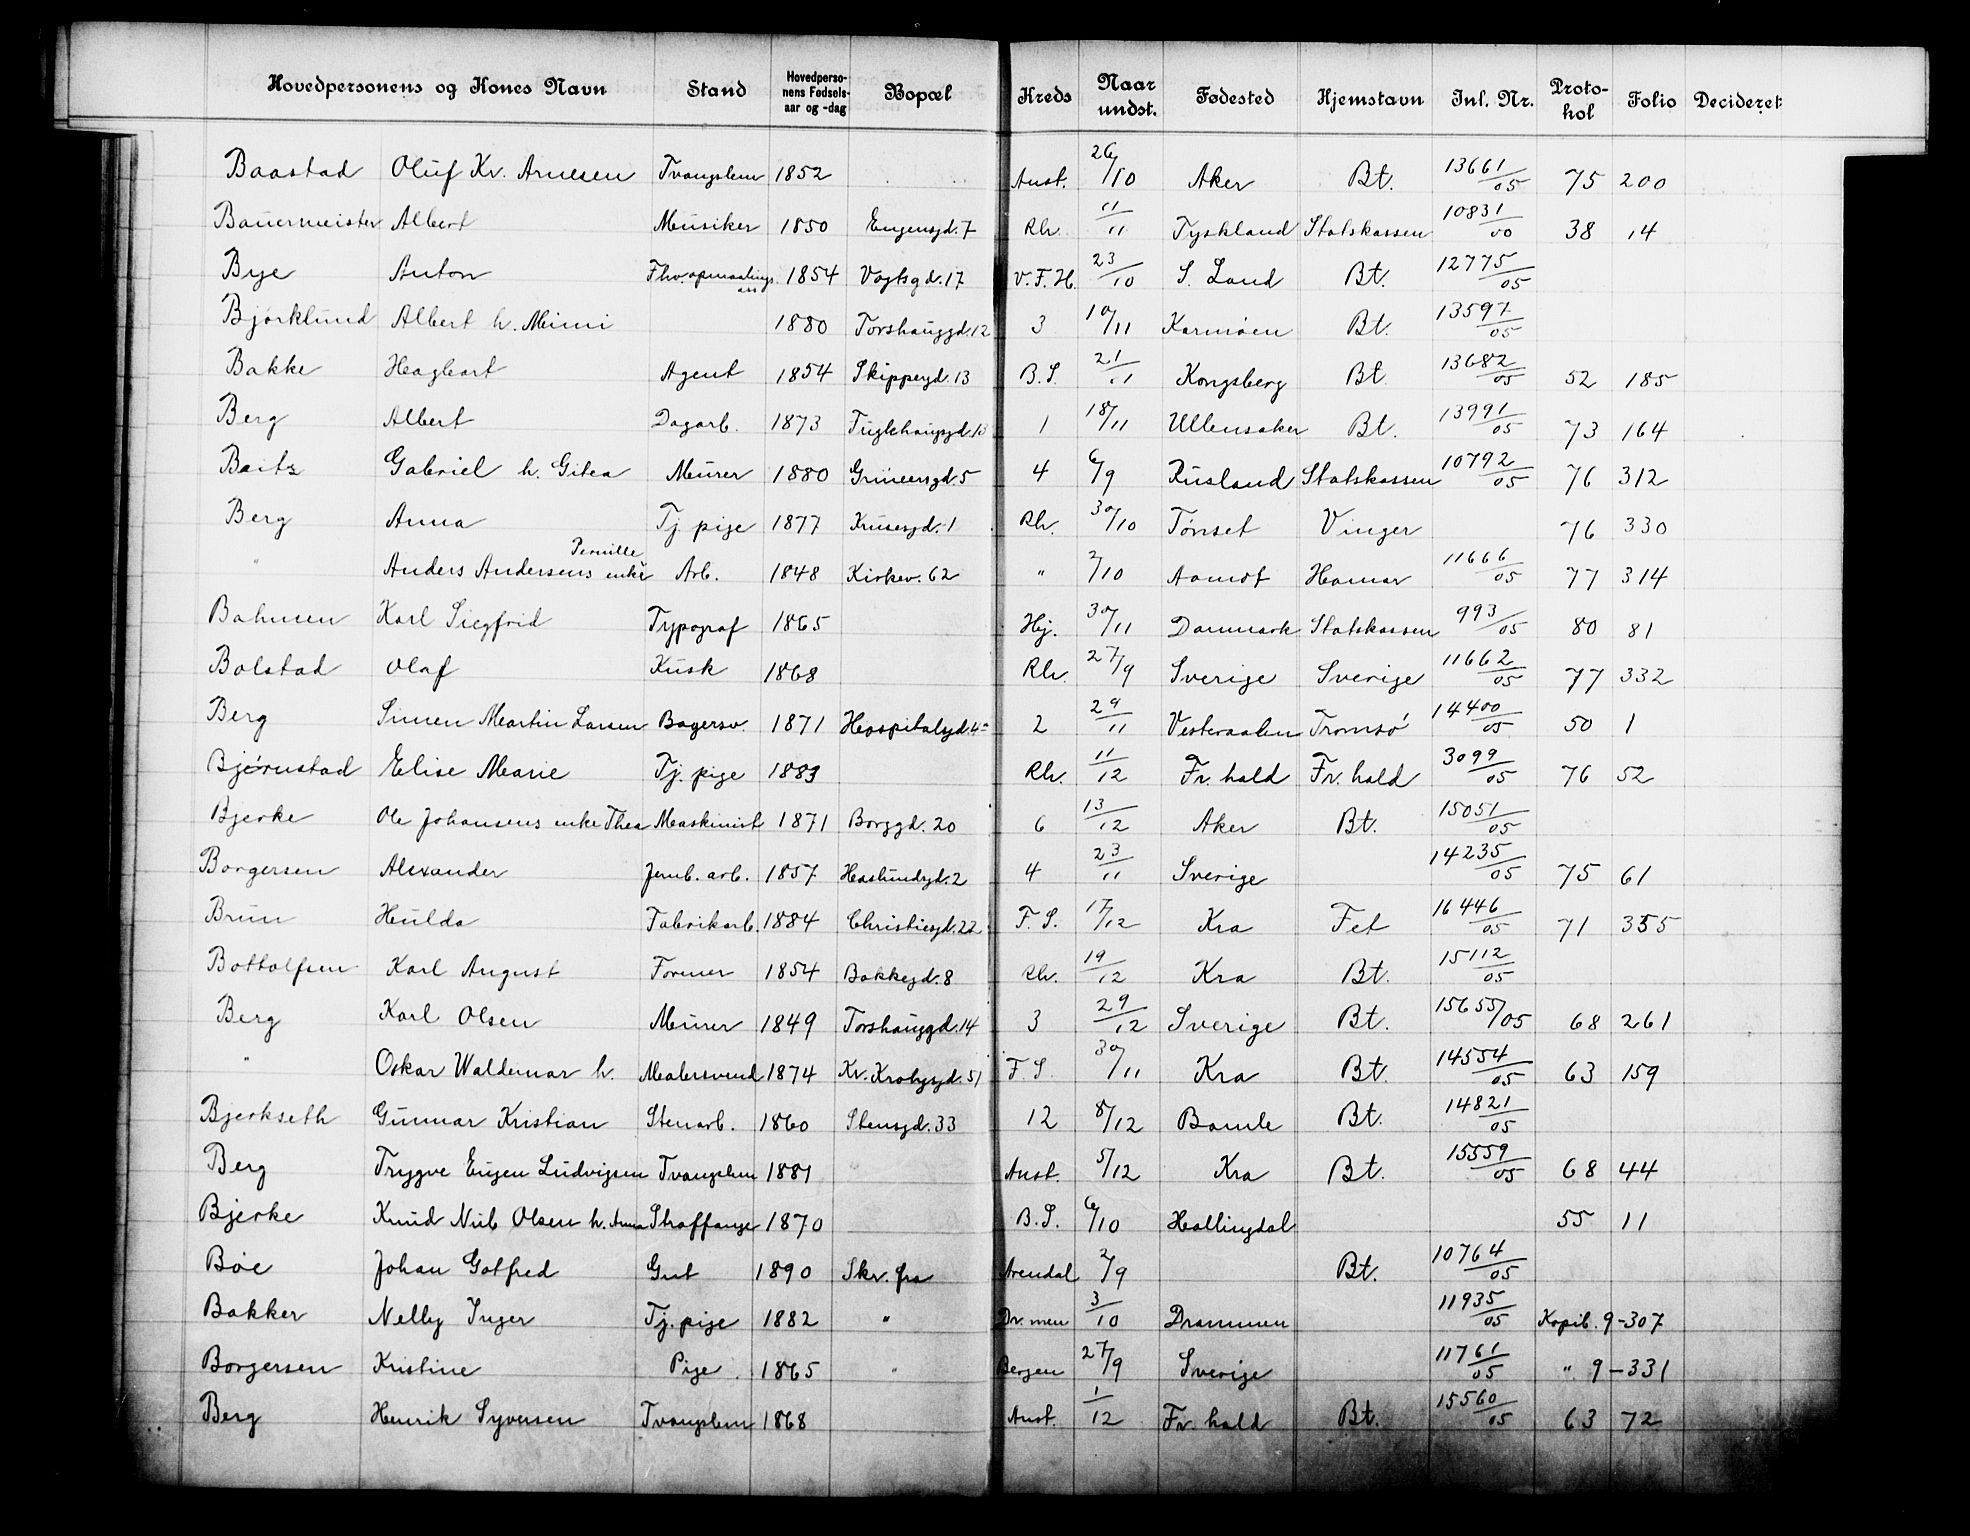 Hovedpersonens og Kones Navn Stand Hovedpersonens Fødselsaar og -dag Bopæl Kreds Naar undst. Fødested Hjemstavn Inl. Nr. Protokol Folio Decideret
Baastad Oluf Kr. Arnesen Tvangslem 1852 Anst. 26/10 Aker Bt. 13661/05 75 200
Bauermeister Albert Musiker 1850 Eugensgd. 7 Rh. 11/11 Tyskland Statskassen 10831/00 38 14
Bye Anton Fhv. opmaalings ass 1854 Vogtsgd. 17 V. F. H. 23/10 S. Land Bt. 12775/05
Bjørklund Albert h. Mimi 1880 Torshauggd. 12 3 10/11 Karmøen Bt. 13597/05
Bakke Hagbart Agent 1854 Skippergd. 13 B. S. 21/11 Kongsberg Bt. 13682/05 52 185
Berg Albert Dagarb. 1873 Fuglehauggd. 1 18/11 Ullensaker Bt. 13991/05 73 164
Baitz Gabriel h. Gitea Murer 1880 Grünersgd. 5 4 6/9 Rusland Statskassen 10792/05 76 312
Berg Anna Tj. pige 1877 Krusesgd. 1 Rh. 30/10 Tønset Vinger 76 330
" Anders Andersens enke Pernille Arb. 1848 Kirkev. 62 " 2/10 Aamot Hamar 11666/05 77 314
Bahnsen Karl Siegfrid Typograf 1865 Hj. 30/11 Danmark Statskassen 993/05 80 81
Bolstad Olaf Kusk 1868 Rh. 27/9 Sverige Sverige 11662/05 77 332
Berg Simen Martin Larsen Bagersv. 1871 Hospitalsgd. 4 2 29/11 Vesteraalen Tromsø 14400/05 50 1
Bjørnstad Elise Marie Tj. pige 1883 Rh. 11/12 Fr. hald Fr. hald 3099/05 76 52
Bjerke Ole Johansens enke Thea Maskinist 1871 Borggd. 20 6 13/12 Aker Bt. 15051/05
Borgersen Alexander Jernb. arb. 1857 Haslundsgd. 2 4 23/11 Sverige 14235/05 75 61
Brun Hulda Fabrikarb. 1884 Christiesgd. 22 F. S. 17/12 Kra Fet 16446/05 71 355
Bottolfsen Karl August Former 1854 Bakkegd. 8 Rh. 19/12 Kra Bt. 15112/05
Berg Karl Olsen Murer 1849 Torshauggd. 14 3 29/12 Sverige Bt. 15655/05 68 261
" Oskar Waldemar h. Malersvend 1874 Kr. Krohgsgd. 51 F. S. 30/11 Kra Bt. 14554/05 63 159
Bjerkseth Gunnar Kristian Stenarb. 1860 Stensgd. 33 12 8/12 Bamle Bt. 14821/05
Berg Trygve Eugen Ludvigsen Tvangslem 1881 Anst. 5/12 Kra Bt. 15559/05 68 44
Bjerke Knud Nub Olsen h. Anna Straffange 1870 B. S. 6/10 Hallingdal 55 11
Bøe Johan Gotfred Gut 1890 Skr. fra Arendal 2/9 Bt. 10764/05
Bakker Nelly Inger Tj. pige 1882 " Dr. men 3/10 Drammen 11935/05 Kopib. 9-307
Borgersen Kristine Pige 1865 " Bergen 27/9 Sverige 11761/05 " 9-331
Berg Henrik Syversen Tvangslem 1868 Anst. 1/12 Fr. hald Bt. 15560/05 63 72